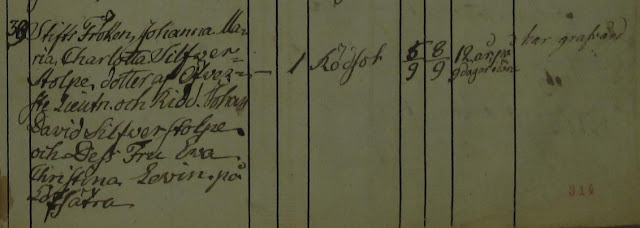 38 Stifts Fröken, Johanna Ma-
ria, Charlotta Silfver-
stolpe, dotter af Öfver-
ste Lieutn. och Ridd. Johan
David Silfverstolpe
och Dess Fru Eva
Christina Levin på
sätra
1 Rödsot
5/9 8/9
12 år
9 dagar
316